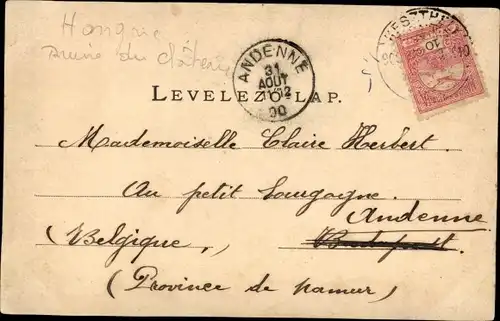 Hongrie
ruine du château
ANDENNE
31
AOUT
11-12
00
LEVELEZŐ-LAP.
Mademoiselle Claire Herbert
Au petit Bourgogne
Andenne
(Belgique, Budapest.
(Province de Namur)